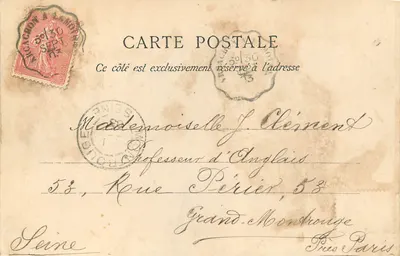 CARTE POSTALE
Ce côté est exclusivement réservé à l'adresse
Mademoiselle J. Clément
Professeur d'Anglais
53, Rue Périer, 53
Grand-Montrouge
Seine
Près Paris